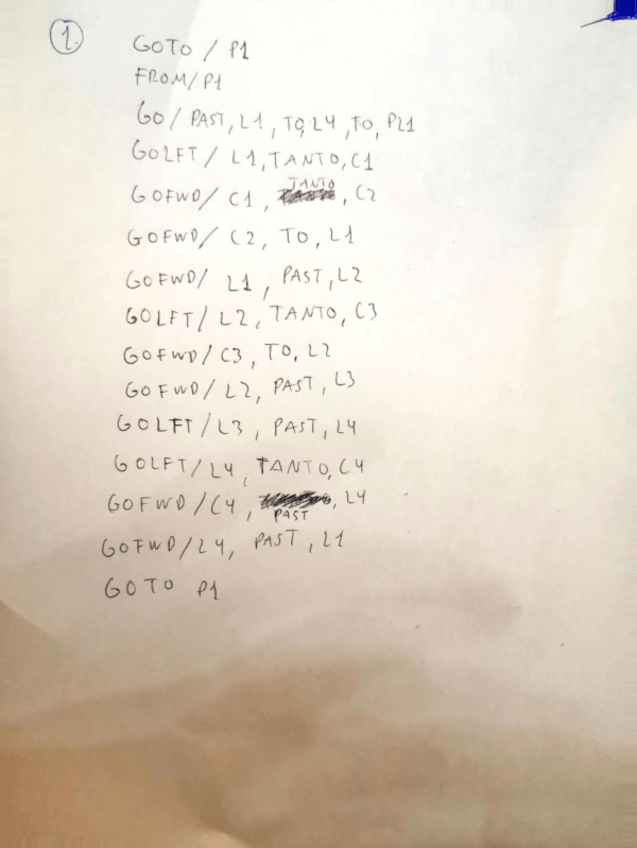 1.
GOTO / P1
FROM/P1
GO/ PAST, L1, TO, L4, TO, PL1
GOLFT/ L1, TANTO, C1
GOFWD/ C1, TANTO, C2
GOFWD/ C2, TO, L1
GOFWD/ L1, PAST, L2
GOLFT/ L2, TANTO, C3
GOFWD/C3, TO, L2
GOFWD/L2, PAST, L3
GOLFT/L3, PAST, L4
GOLFT/L4, TANTO, C4
GOFWD/C4, PAST, L4
GOFWD/L4, PAST, L1
GOTO P1